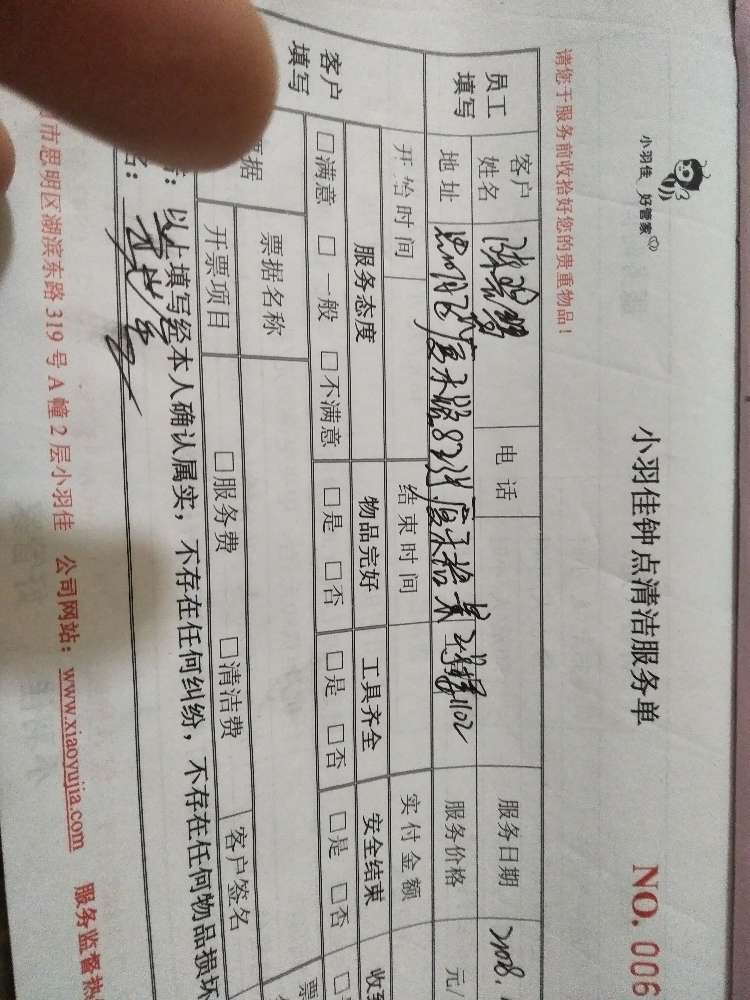 小羽佳 好管家
小羽佳钟点清洁服务单
NO. 006
请您于服务前收拾好您的贵重物品！
员工填写
客户姓名
电话
服务日期
2008.
地址
服务价格
元/
开始时间
结束时间
实付金额
客户填写
服务态度
物品完好
工具齐全
安全结束
收
□满意 □一般 □不满意
□是 □否
□是 □否
□是 □否
□
据
票据名称
票
开票项目
□服务费 □清洁费
客户签名
以上填写经本人确认属实，不存在任何纠纷，不存在任何物品损坏
名：
市思明区湖滨东路 319 号 A 幢 2 层小羽佳 公司网站：www.xiaoyujia.com 服务监督热